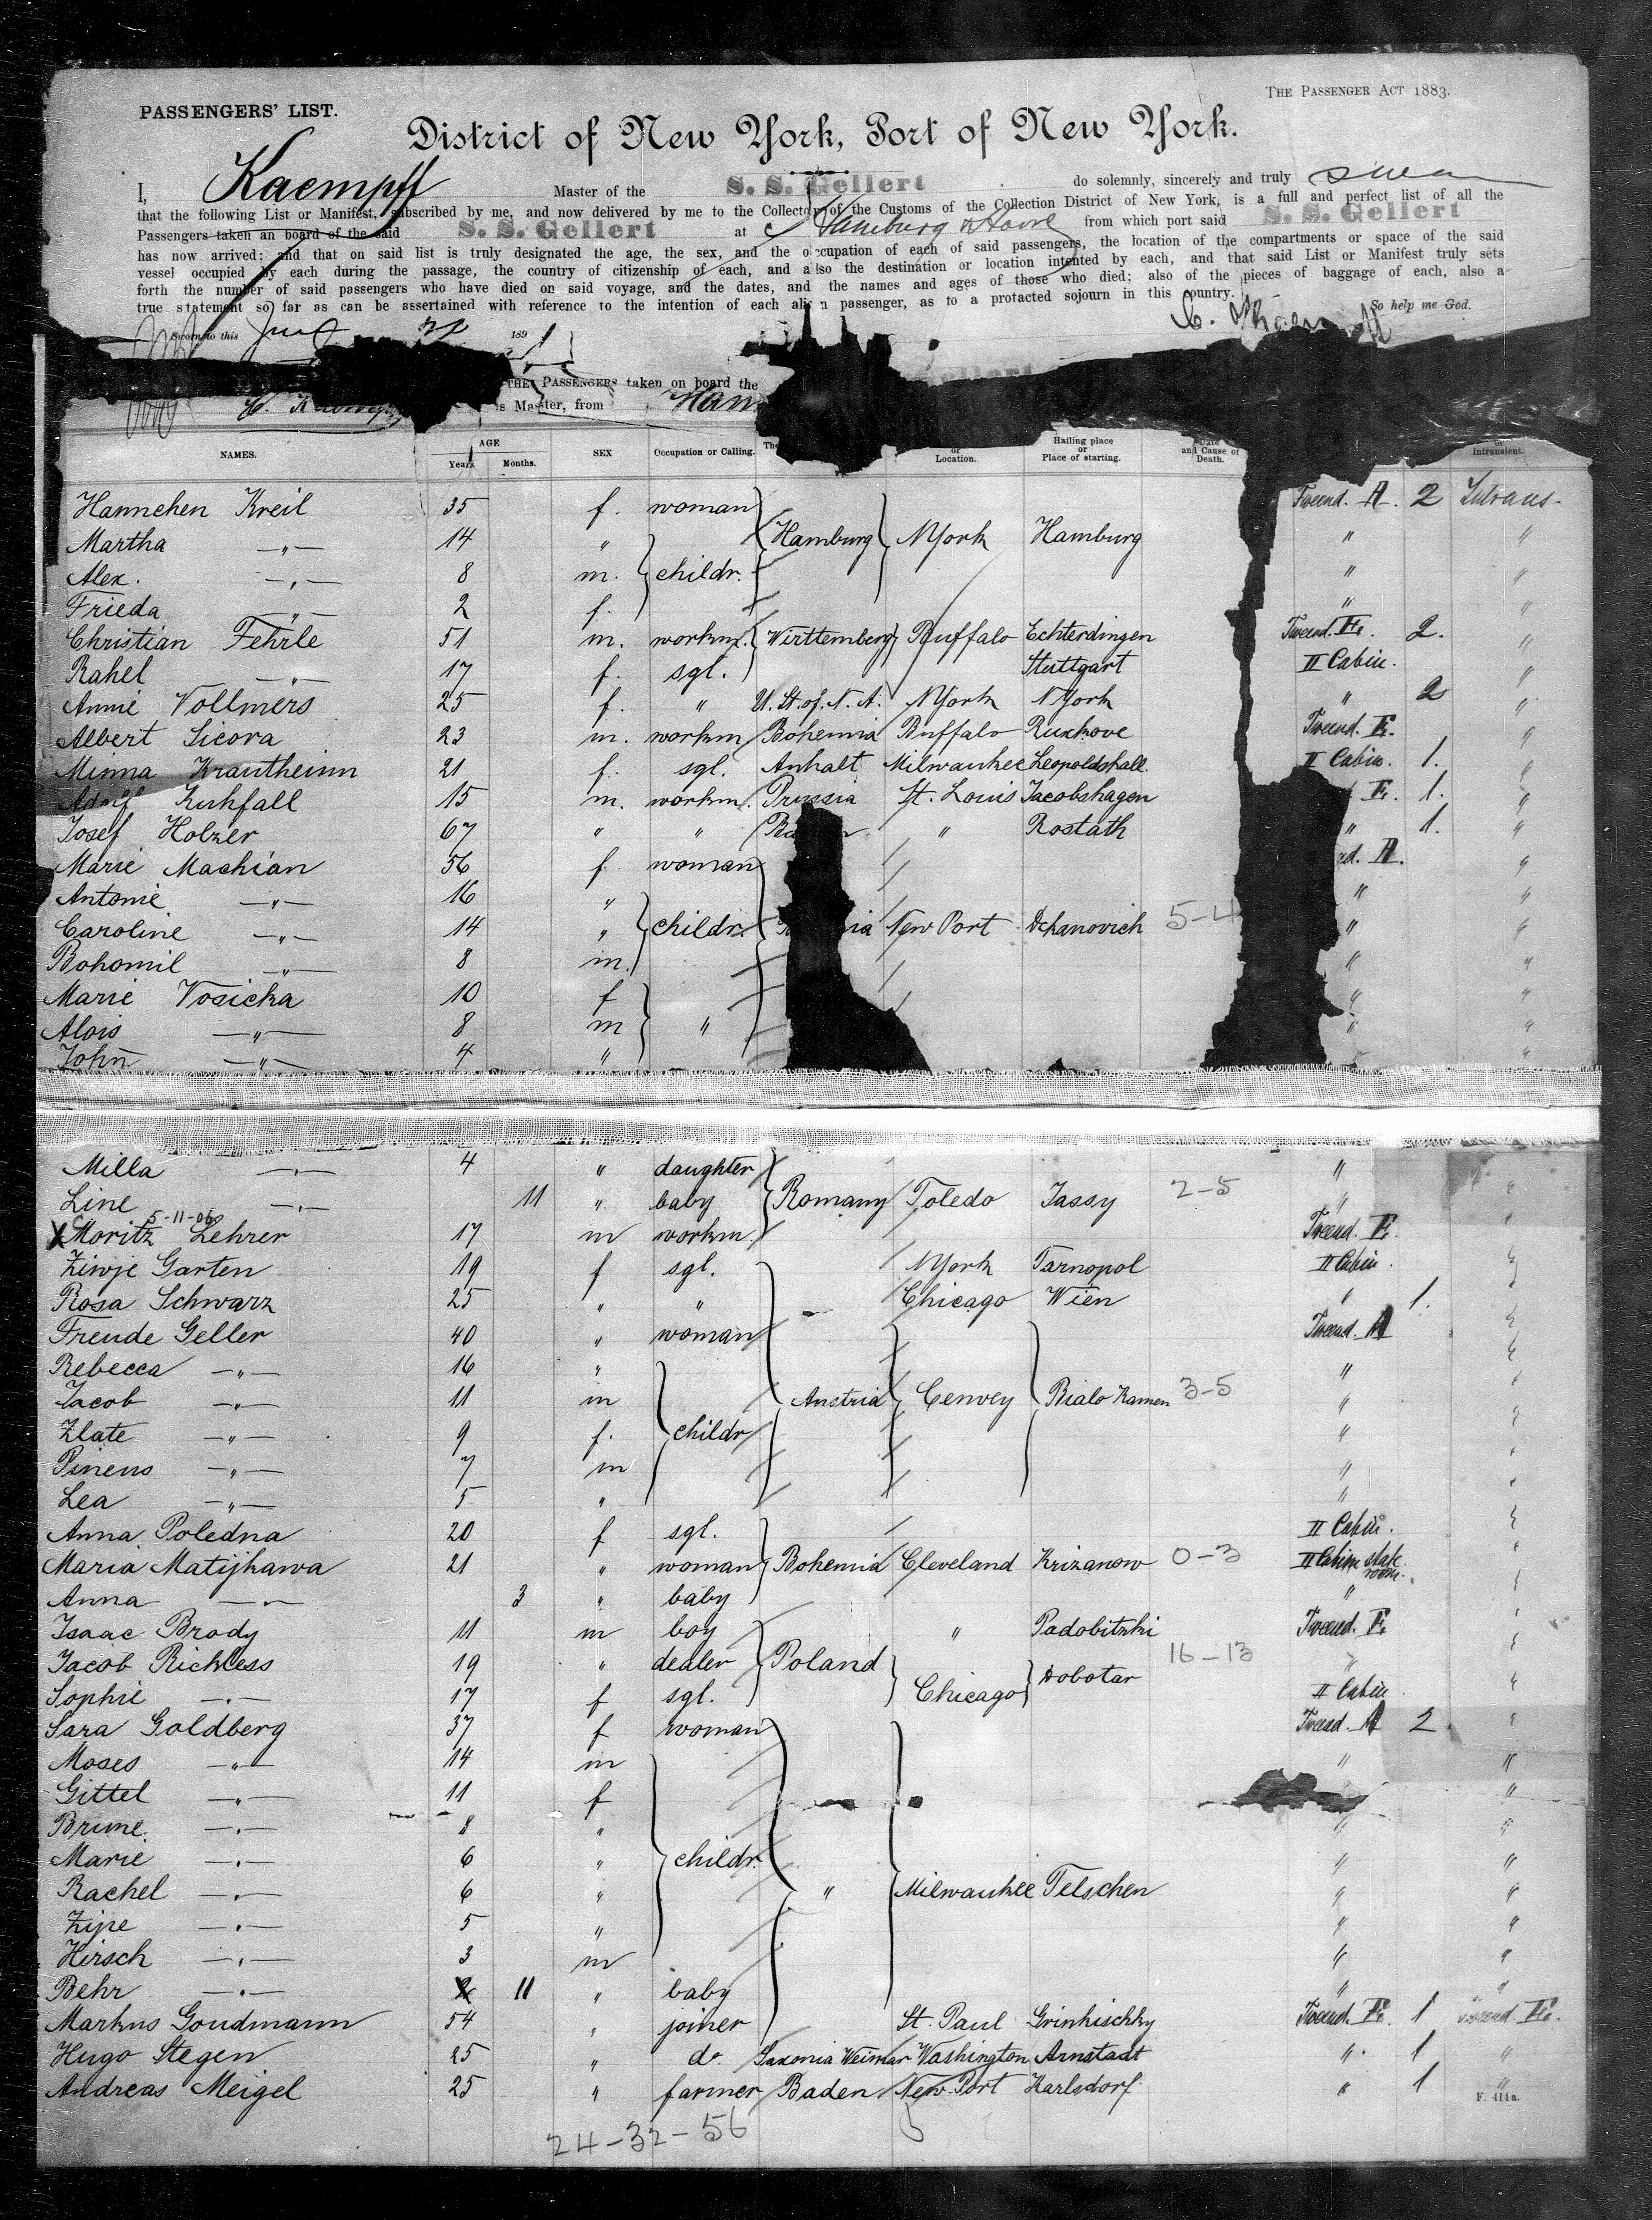 PASSENGERS' LIST.
THE PASSENGER ACT 1883.
District of New York, Port of New York.
I, Kaempff Master of the S. S. Gellert do solemnly, sincerely and truly swear
that the following List or Manifest, subscribed by me, and now delivered by me to the Collector of the Customs of the Collection District of New York, is a full and perfect list of all the
Passengers taken an board of the said S. S. Gellert at Hamburg & Havre from which port said S. S. Gellert
has now arrived; and that on said list is truly designated the age, the sex, and the occupation of each of said passengers, the location of the compartments or space of the said
vessel occupied by each during the passage, the country of citizenship of each, and also the destination or location intented by each, and that said List or Manifest truly sets
forth the number of said passengers who have died on said voyage, and the dates, and the names and ages of those who died; also of the pieces of baggage of each, also a
true statement so far as can be ascertained with reference to the intention of each alien passenger, as to a protacted sojourn in this country.
So help me God.
Sworn to this 189
THE PASSENGERS taken on board the Gellert
Master, from Ham
NAMES. AGE Years Months. SEX Occupation or Calling. or Location. Hailing place or Place of starting. Date and Cause of Death. Intransient.
Hannchen Kreil 35 f. woman Tweend. A. 2 Intrans.
Martha —"— 14 " Hamburg NYork Hamburg " "
Alex. —"— 8 m. childr. " "
Frieda —"— 2 f. " "
Christian Fehrle 51 m. workm. Württemberg Buffalo Echterdingen Tweend. F. 2. "
Rahel —"— 17 f. sgl. Stuttgart II Cabin. "
Annie Vollmers 25 f. " U. St. of. N. A. NYork NYork " 2 "
Albert Sicora 23 m. workm Bohemia Buffalo Ruckove Tweend. F. "
Minna Krautheimn 21 f. sgl. Anhalt Milwaukee Leopoldshall. II Cabin. 1. "
Adolf Kuhfall 15 m. workm. Prussia St. Louis Jacobshagen F. 1. "
Josef Holzer 67 " " " Rostath " 1. "
Marie Machian 56 f. woman A. "
Antonie —"— 16 " " "
Caroline —"— 14 " childr. New Port Dchanovich 5-4 " "
Bohomil —"— 8 m. " "
Marie Vosicka 10 f " "
Alois —"— 8 m " " "
John —"— 4 " " "
Milla —"— 4 " daughter "
Line —"— 11 " baby Romany Toledo Jassy 2-5 " "
5-11-06
X Moritz Lehrer 17 m workm. Tweend. F. "
Ziwje Garten 19 f sgl. NYork Tarnopol II Cabin. "
Rosa Schwarz 25 " " Chicago Wien " 1. "
Freude Geller 40 " woman Tweend. A "
Rebecca —"— 16 " " "
Jacob —"— 11 m Austria Cenvey Bialo Kamen 3-5 " "
Zlate —"— 9 f. childr " "
Pineus —"— 7 m " "
Lea —"— 5 " " "
Anna Poledna 20 f sgl. II Cabin. "
Maria Matijkawa 21 " woman Bohemia Cleveland Krizanow 0-3 II Cabin state room. "
Anna —"— 3 " baby " "
Isaac Brody 11 m boy " Padobitzki Tweend. F. "
Jacob Richless 19 " dealer Poland Dobotar 16-13 " "
Sophie —"— 17 f sgl. Chicago II Cabin. "
Sara Goldberg 37 f woman Tweend. A 2. "
Moses —"— 14 m " "
Gittel —"— 11 f "
Brune. —"— 8 " " "
Marie —"— 6 " childr. " "
Rachel —"— 6 " " Milwaukee Telschen " "
Zipe —"— 5 " " "
Hirsch —"— 3 m " "
Behr —"— 11 " baby " "
Markus Goudmann 54 " joiner St. Paul Grinkischky Tweend. F. 1 Tweend. F.
Hugo Stegen 25 " do. Saxonia Weimar Washington Arnstadt " 1 "
Andreas Meigel 25 " farmer Baden New Port Karlsdorf. " 1 "
F. 414a.
24-32-56